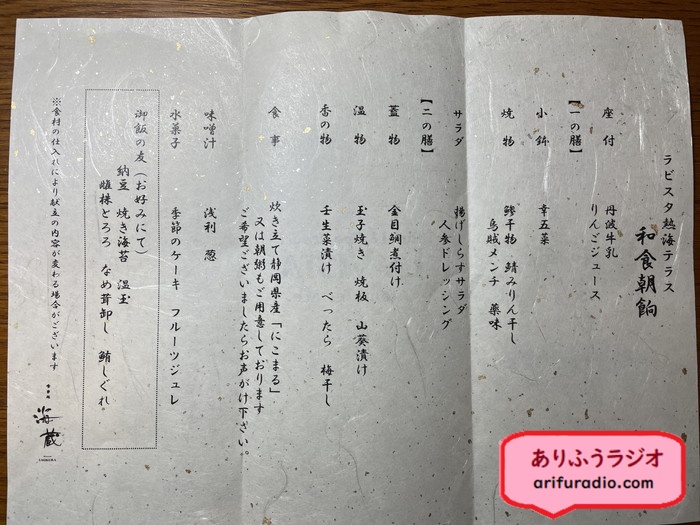 ラビスタ熱海テラス
和食朝餉
座付 丹波牛乳
りんごジュース
【一の膳】
小鉢 幸五菜
焼物 鯵干物 鯖みりん干し
烏賊メンチ 薬味
サラダ 揚げしらすサラダ
人参ドレッシング
【二の膳】
蓋物 金目鯛煮付け
温物 玉子焼き 焼板 山葵漬け
香の物 壬生菜漬け べったら 梅干し
食事 炊き立て静岡県産「にこまる」
又は朝粥もご用意しております
ご希望ございましたらお声がけ下さい。
味噌汁 浅利 葱
水菓子 季節のケーキ フルーツジュレ
御飯の友(お好みにて)
納豆 焼き海苔 温玉
雌株とろろ なめ茸卸し 鮪しぐれ
※食材の仕入れにより献立の内容が変わる場合がございます
海蔵
ありふうラジオ
arifuradio.com